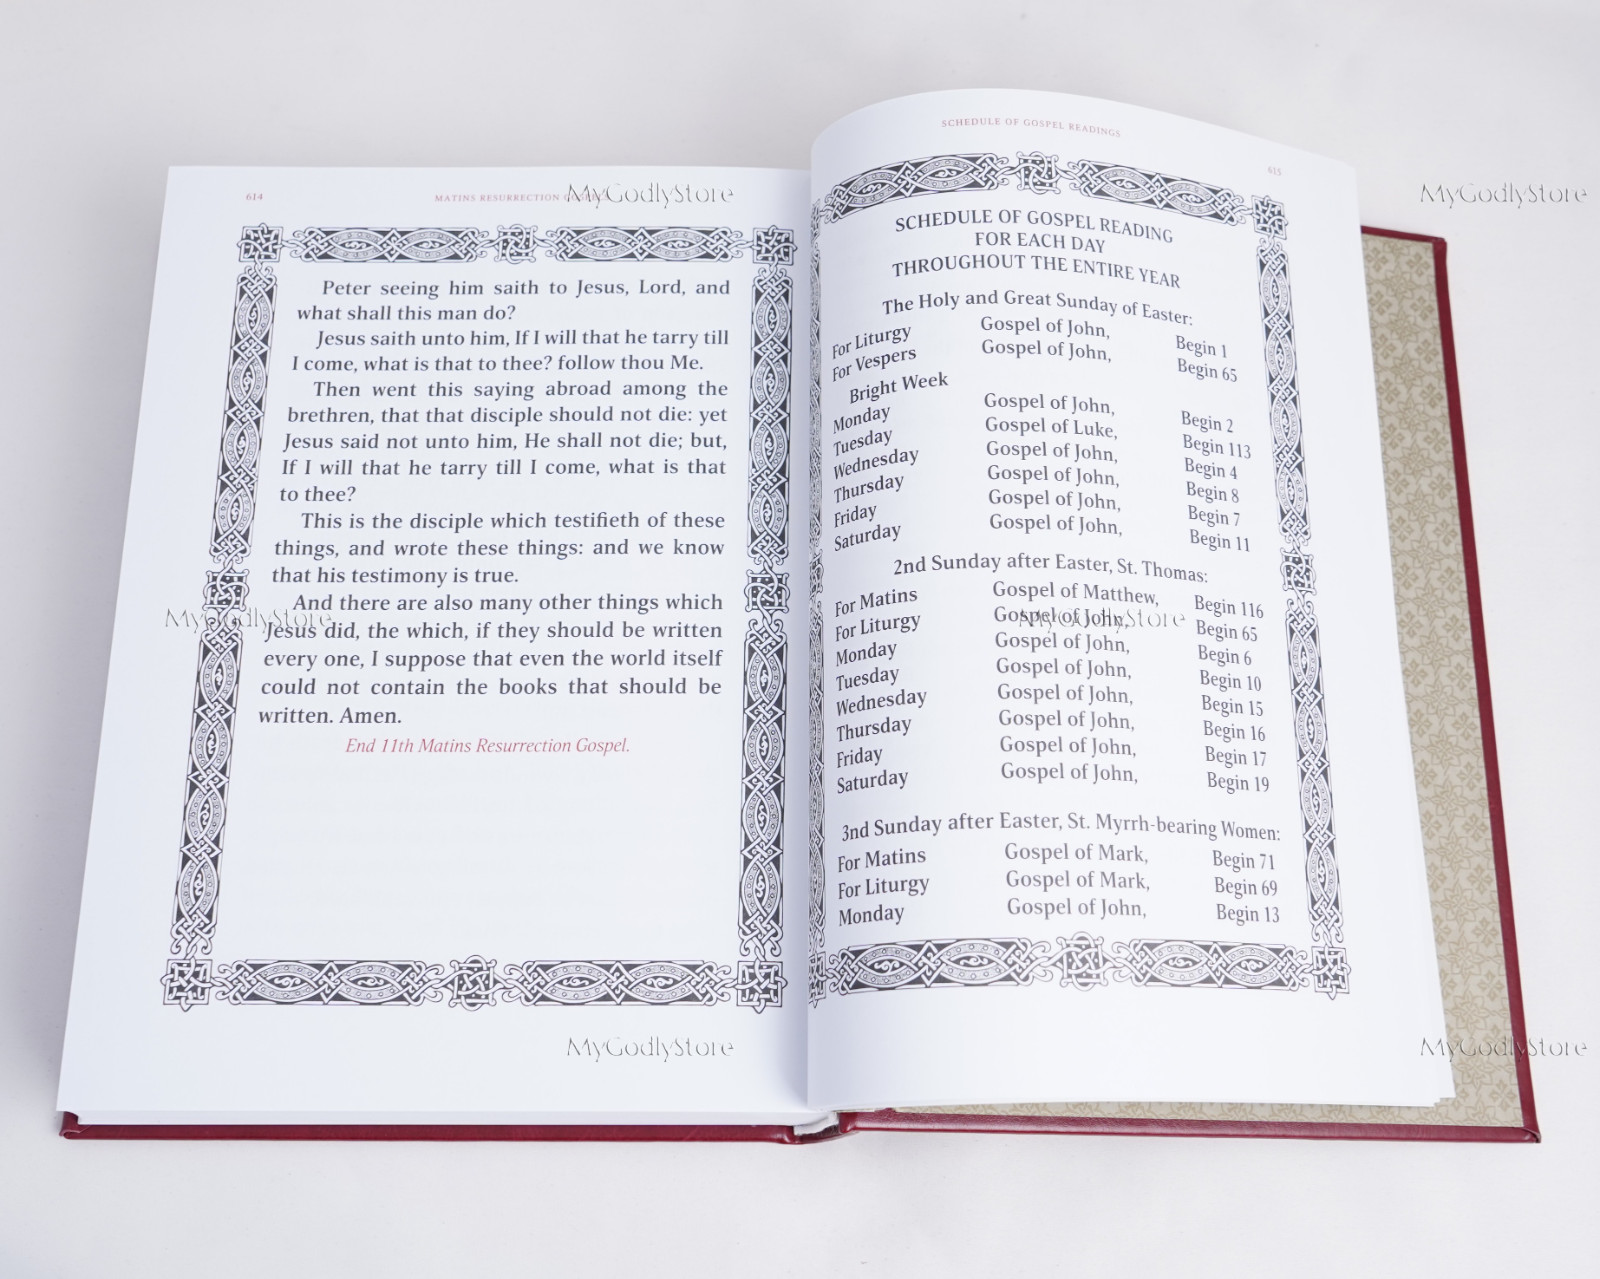 614
MATINS RESURRECTION GOSPELS
Peter seeing him saith to Jesus, Lord, and
what shall this man do?
Jesus saith unto him, If I will that he tarry till
I come, what is that to thee? follow thou Me.
Then went this saying abroad among the
brethren, that that disciple should not die: yet
Jesus said not unto him, He shall not die; but,
If I will that he tarry till I come, what is that
to thee?
This is the disciple which testifieth of these
things, and wrote these things: and we know
that his testimony is true.
And there are also many other things which
Jesus did, the which, if they should be written
every one, I suppose that even the world itself
could not contain the books that should be
written. Amen.
End 11th Matins Resurrection Gospel.
SCHEDULE OF GOSPEL READINGS
615
SCHEDULE OF GOSPEL READING
FOR EACH DAY
THROUGHOUT THE ENTIRE YEAR
The Holy and Great Sunday of Easter:
For Liturgy Gospel of John, Begin 1
For Vespers Gospel of John, Begin 65
Bright Week
Monday Gospel of John, Begin 2
Tuesday Gospel of Luke, Begin 113
Wednesday Gospel of John, Begin 4
Thursday Gospel of John, Begin 8
Friday Gospel of John, Begin 7
Saturday Gospel of John, Begin 11
2nd Sunday after Easter, St. Thomas:
For Matins Gospel of Matthew, Begin 116
For Liturgy Gospel of John, Begin 65
Monday Gospel of John, Begin 6
Tuesday Gospel of John, Begin 10
Wednesday Gospel of John, Begin 15
Thursday Gospel of John, Begin 16
Friday Gospel of John, Begin 17
Saturday Gospel of John, Begin 19
3nd Sunday after Easter, St. Myrrh-bearing Women:
For Matins Gospel of Mark, Begin 71
For Liturgy Gospel of Mark, Begin 69
Monday Gospel of John, Begin 13
MyGodlyStore
MyGodlyStore
MyGodlyStore
MyGodlyStore
MyGodlyStore
MyGodlyStore